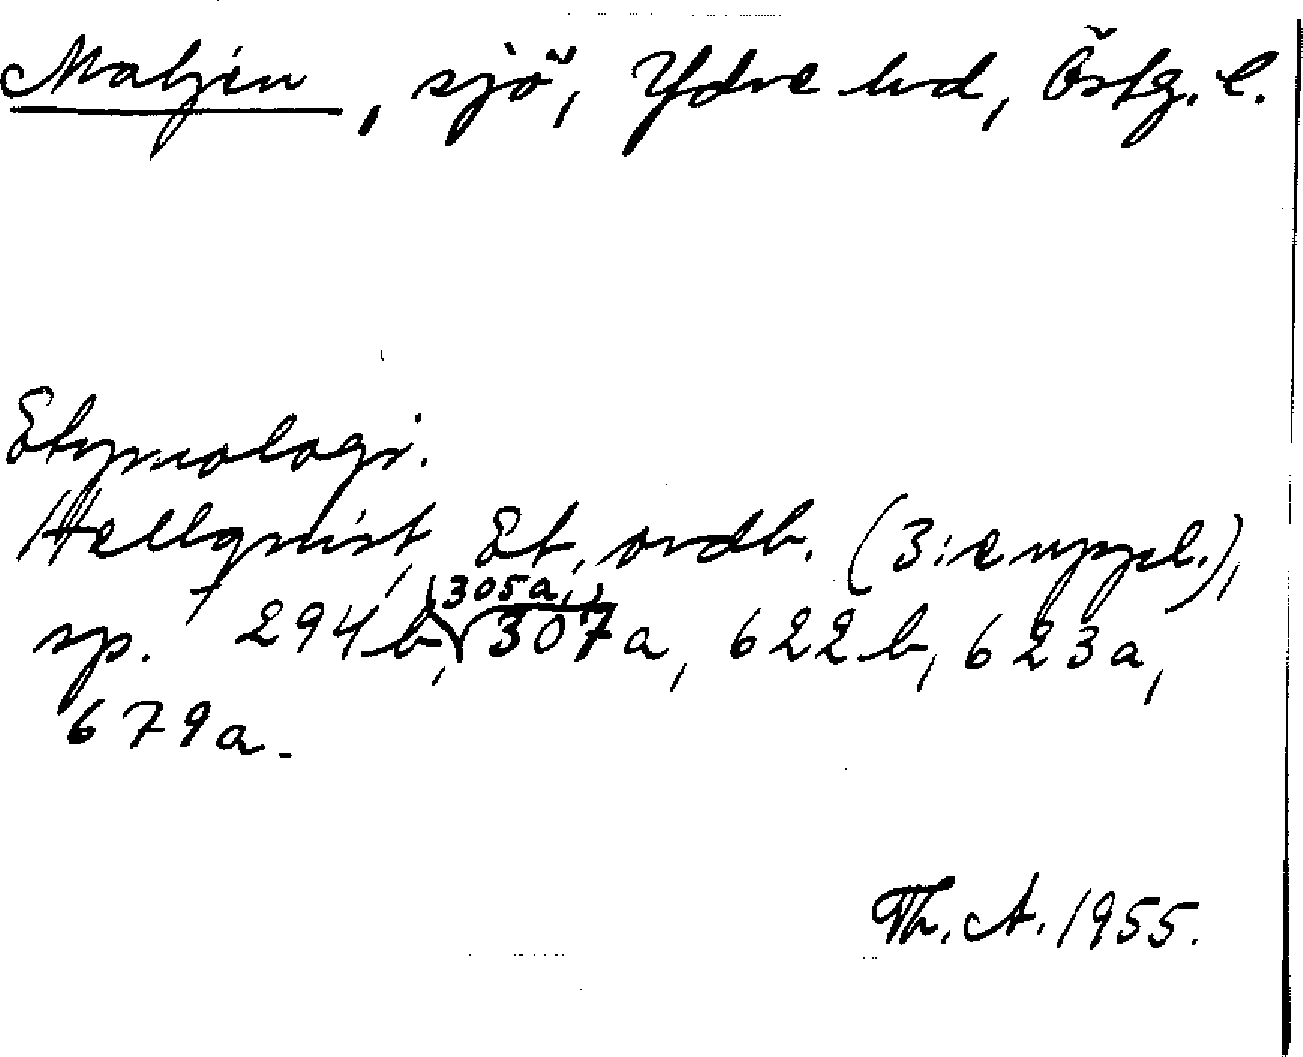 Maljen, sjö, Ydre hd, Östg. l.
Etymologi.
Hellquist, Et. ordb. (3:e uppl.),
sp. 294b, 305a, 307a, 622b, 623a,
679a.
Th. A. 1955.